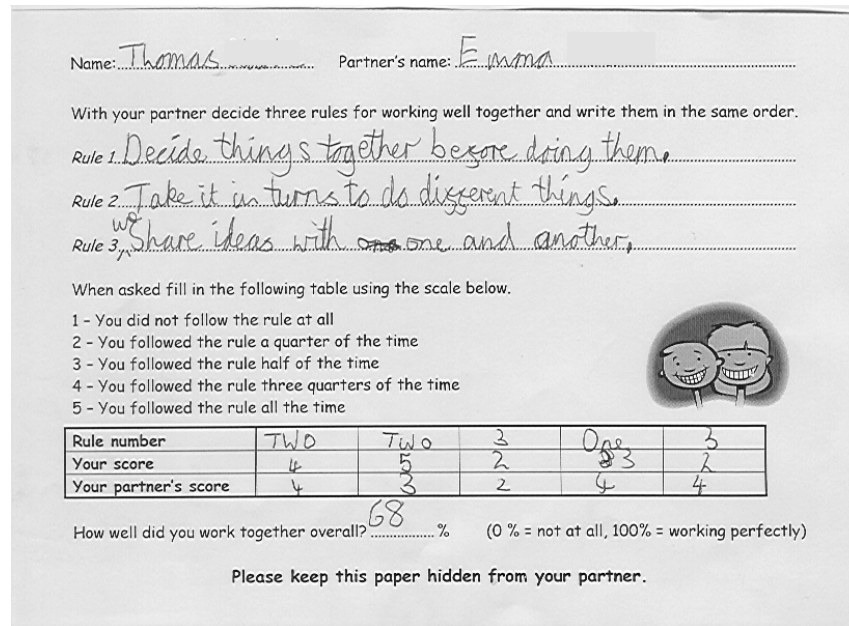 Name: Thomas Partner's name: Emma
With your partner decide three rules for working well together and write them in the same order.
Rule 1 Decide things together before doing them.
Rule 2 Take it in turns to do different things.
Rule 3 we Share ideas with one and another.
When asked fill in the following table using the scale below.
1 - You did not follow the rule at all
2 - You followed the rule a quarter of the time
3 - You followed the rule half of the time
4 - You followed the rule three quarters of the time
5 - You followed the rule all the time
Rule number TWO Two 3 One 3
Your score 4 5 2 3 2
Your partner's score 4 3 2 4 4
How well did you work together overall? 68 % (0 % = not at all, 100% = working perfectly)
Please keep this paper hidden from your partner.